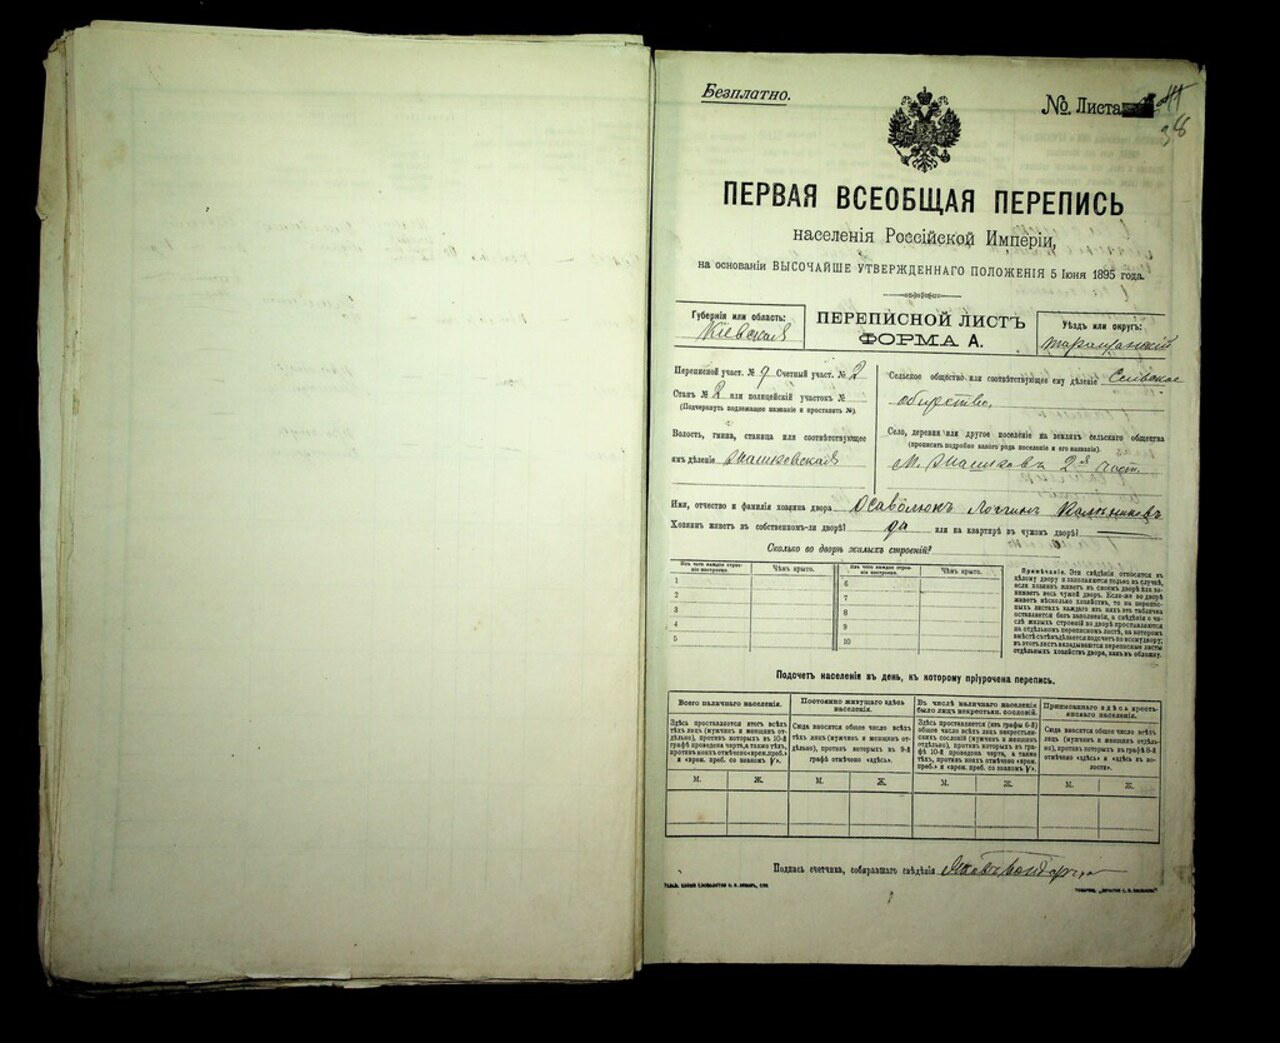 Безплатно.
№. Листа
38
ПЕРВАЯ ВСЕОБЩАЯ ПЕРЕПИСЬ
населенія Россійской Имперіи,
на основаніи ВЫСОЧАЙШЕ УТВЕРЖДЕННАГО ПОЛОЖЕНІЯ 5 Іюня 1895 года.
Губернія или область:
Кіевская
ПЕРЕПИСНОЙ ЛИСТЪ
ФОРМА А.
Уѣздъ или округъ:
Таращанскій
Переписной участ. № 9 Счетный участ. № 2
Станъ № 2 или полицейскій участокъ №
(Подчеркнуть подлежащее названіе и проставить №).
Волость, гмина, станица или соотвѣтствующее
имъ дѣленіе
Сельское общество или соотвѣтствующее ему дѣленіе
Село, деревня или другое поселеніе на земляхъ сельскаго общества
(прописать подробно какого рода поселеніе и его названіе).
М. 2я част.
Имя, отчество и фамилія хозяина двора Осаволюкъ Логгинъ
Хозяинъ живетъ въ собственномъ-ли дворѣ? да или на квартирѣ въ чужомъ дворѣ?
Сколько во дворѣ жилыхъ строеній?
Изъ чего каждое строеніе построено. Чѣмъ крыто. Изъ чего каждое строеніе построено. Чѣмъ крыто.
1 6
2 7
3 8
4 9
5 10
Примѣчаніе. Эти свѣдѣнія относятся къ
цѣлому двору и заполняются только въ случаѣ,
если хозяинъ живетъ въ своемъ дворѣ или занимаетъ весь чужой дворъ. Если-же во дворѣ
живетъ нѣсколько хозяйствъ, то на переписныхъ листахъ каждаго изъ нихъ эта табличка
оставляется безъ заполненія, а свѣдѣнія о числѣ жилыхъ строеній во дворѣ проставляются
на отдѣльномъ переписномъ листѣ, на которомъ
вмѣстѣ съ тѣмъ дѣлается подсчетъ по всему двору;
въ этотъ листъ вкладываются переписные листы
отдѣльныхъ хозяйствъ двора, какъ въ обложку.
Подсчетъ населенія въ день, къ которому пріурочена перепись.
Всего наличнаго населенія.
Здѣсь проставляется итогъ всѣхъ
тѣхъ лицъ (мужчинъ и женщинъ отдѣльно), противъ которыхъ въ 10-й
графѣ проведена черта, а также тѣхъ,
противъ коихъ отмѣчено «врем. преб.»
и «врем. преб. со знакомъ V».
Постоянно живущаго здѣсь
населенія.
Сюда вносится общее число всѣхъ
тѣхъ лицъ (мужчинъ и женщинъ отдѣльно), противъ которыхъ въ 9-й
графѣ отмѣчено «здѣсь».
Въ числѣ наличнаго населенія
было лицъ некрестьян. сословій.
Здѣсь проставляется (изъ графы 6-й)
общее число всѣхъ лицъ некрестьянскихъ сословій (мужчинъ и женщинъ
отдѣльно), противъ которыхъ въ графѣ 10-й проведена черта, а также
тѣхъ, противъ коихъ отмѣчено «врем.
преб.» и «врем. преб. со знакомъ V».
Приписаннаго здѣсь крестьянскаго населенія.
Сюда вносится общее число всѣхъ
лицъ (мужчинъ и женщинъ отдѣльно), противъ которыхъ въ графѣ 8-й
отмѣчено «здѣсь» и «здѣсь въ волости».
М. Ж. М. Ж. М. Ж. М. Ж.
Подпись счетчика, собиравшаго свѣдѣнія